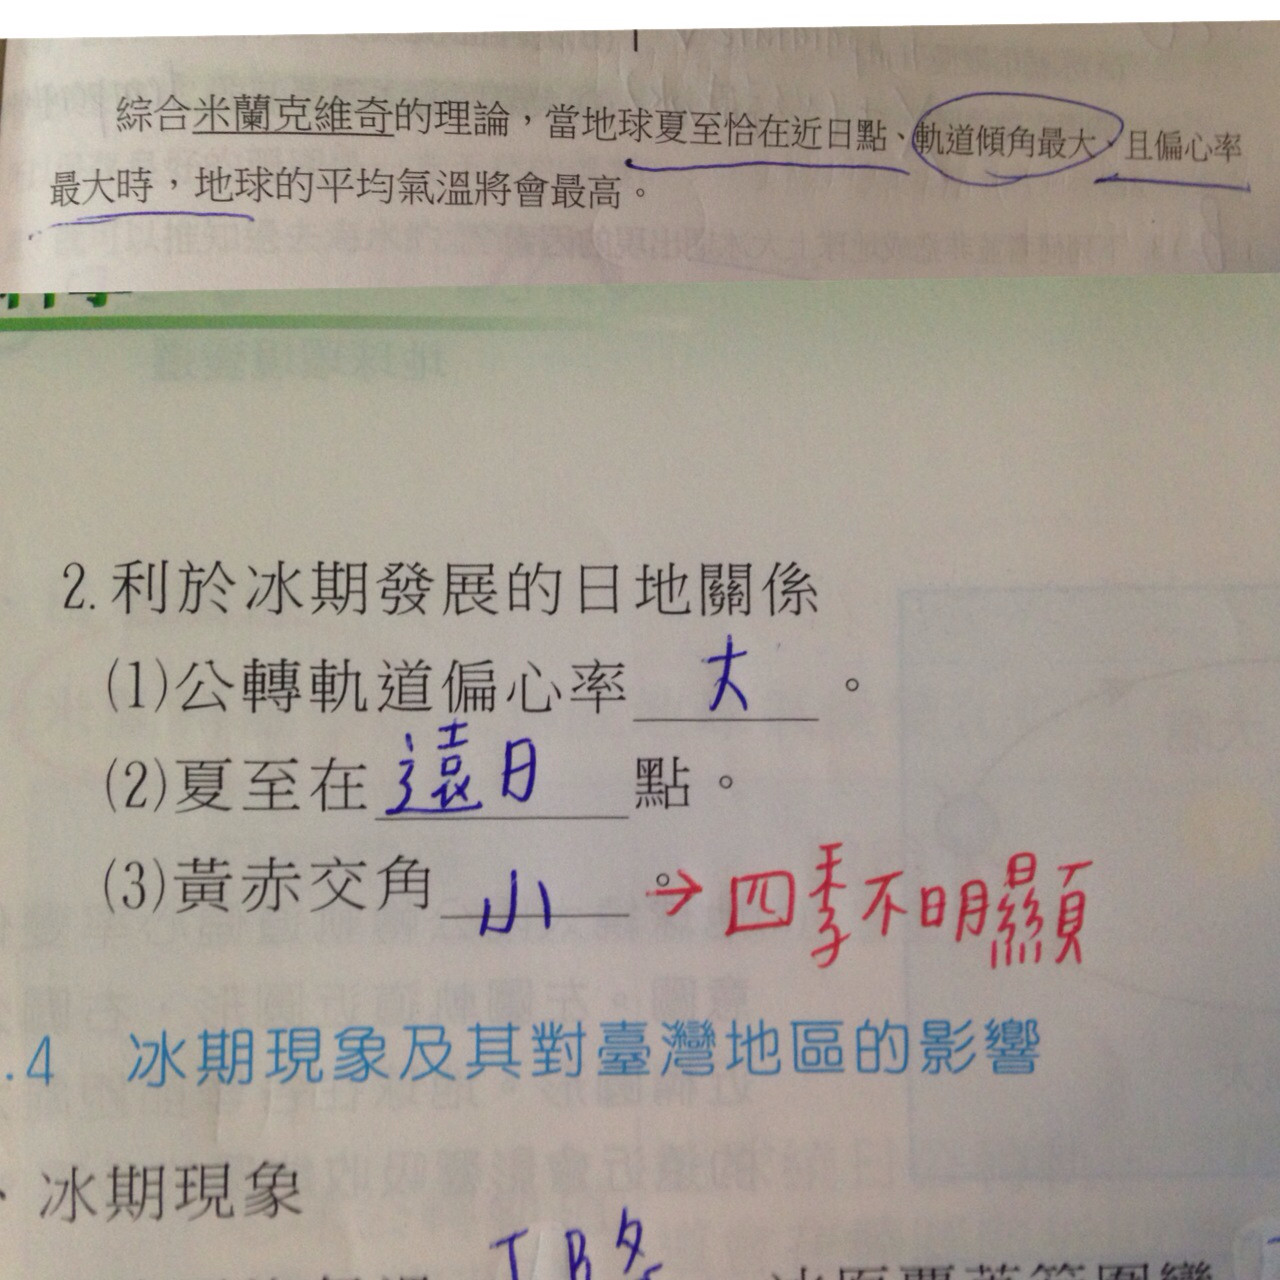 綜合米蘭克維奇的理論，當地球夏至恰在近日點、軌道傾角最大、且偏心率
最大時，地球的平均氣溫將會最高。
2.利於冰期發展的日地關係
(1)公轉軌道偏心率 大 。
(2)夏至在 遠日 點。
(3)黃赤交角 小 。→四季不明顯
.4 冰期現象及其對臺灣地區的影響
、冰期現象